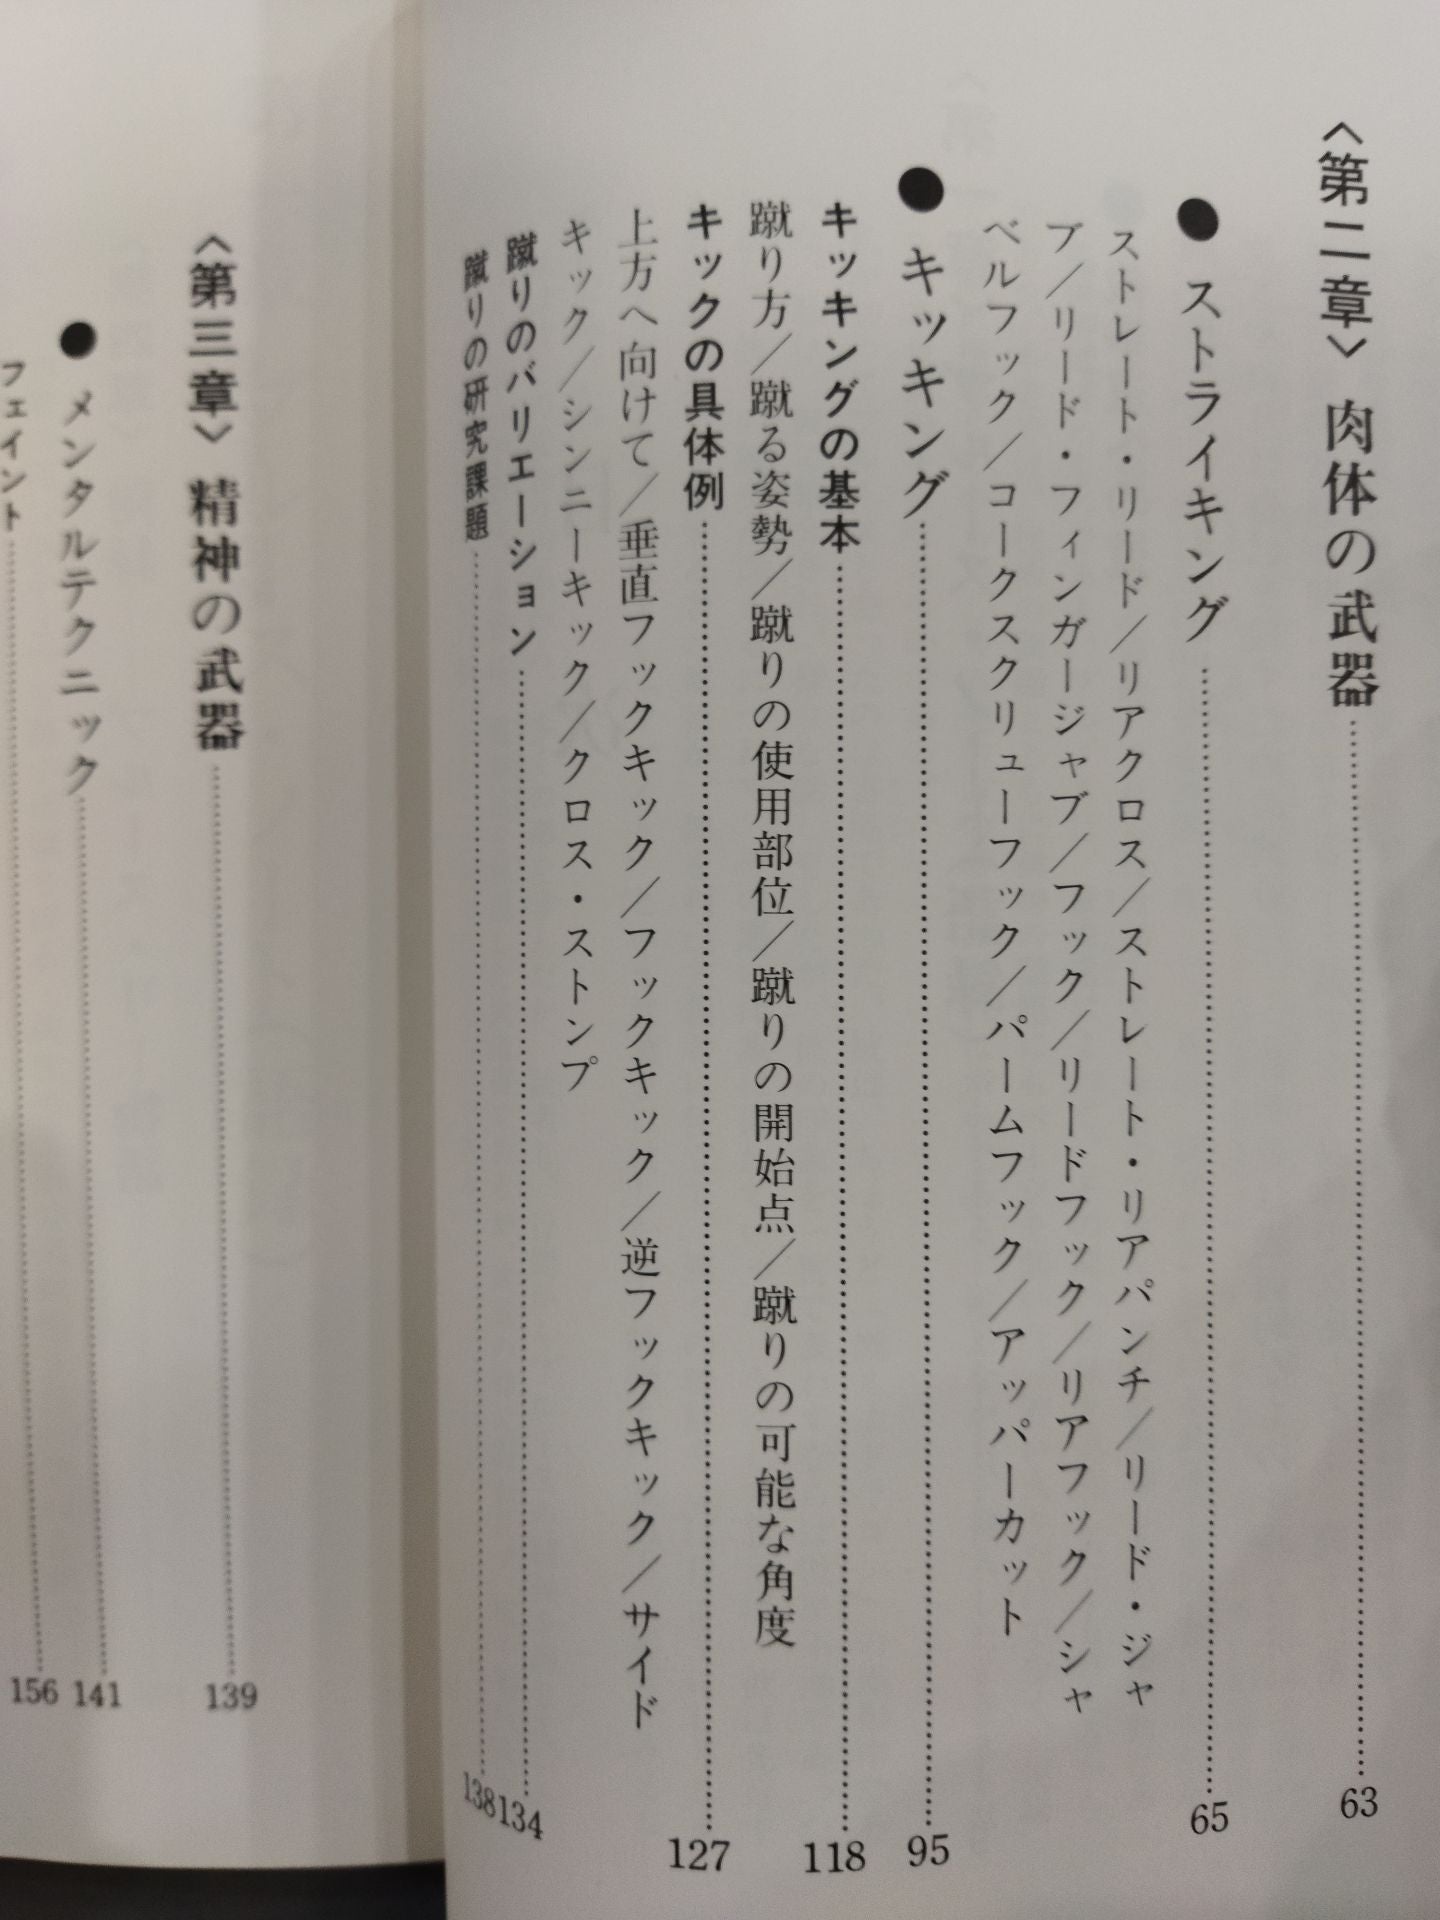 〈第二章〉 肉体の武器……63
● ストライキング……65
ストレート・リード／リアクロス／ストレート・リアパンチ／リード・ジャ
ブ／リード・フィンガージャブ／フック／リードフック／リアフック／シャ
ベルフック／コークスクリューフック／パームフック／アッパーカット
● キッキング……95
キッキングの基本……118
蹴り方／蹴る姿勢／蹴りの使用部位／蹴りの開始点／蹴りの可能な角度
キックの具体例……127
上方へ向けて／垂直フックキック／フックキック／逆フックキック／サイド
キック／シンニーキック／クロス・ストンプ
蹴りのバリエーション……134
蹴りの研究課題……138
〈第三章〉 精神の武器……139
● メンタルテクニック……141
フェイント……156